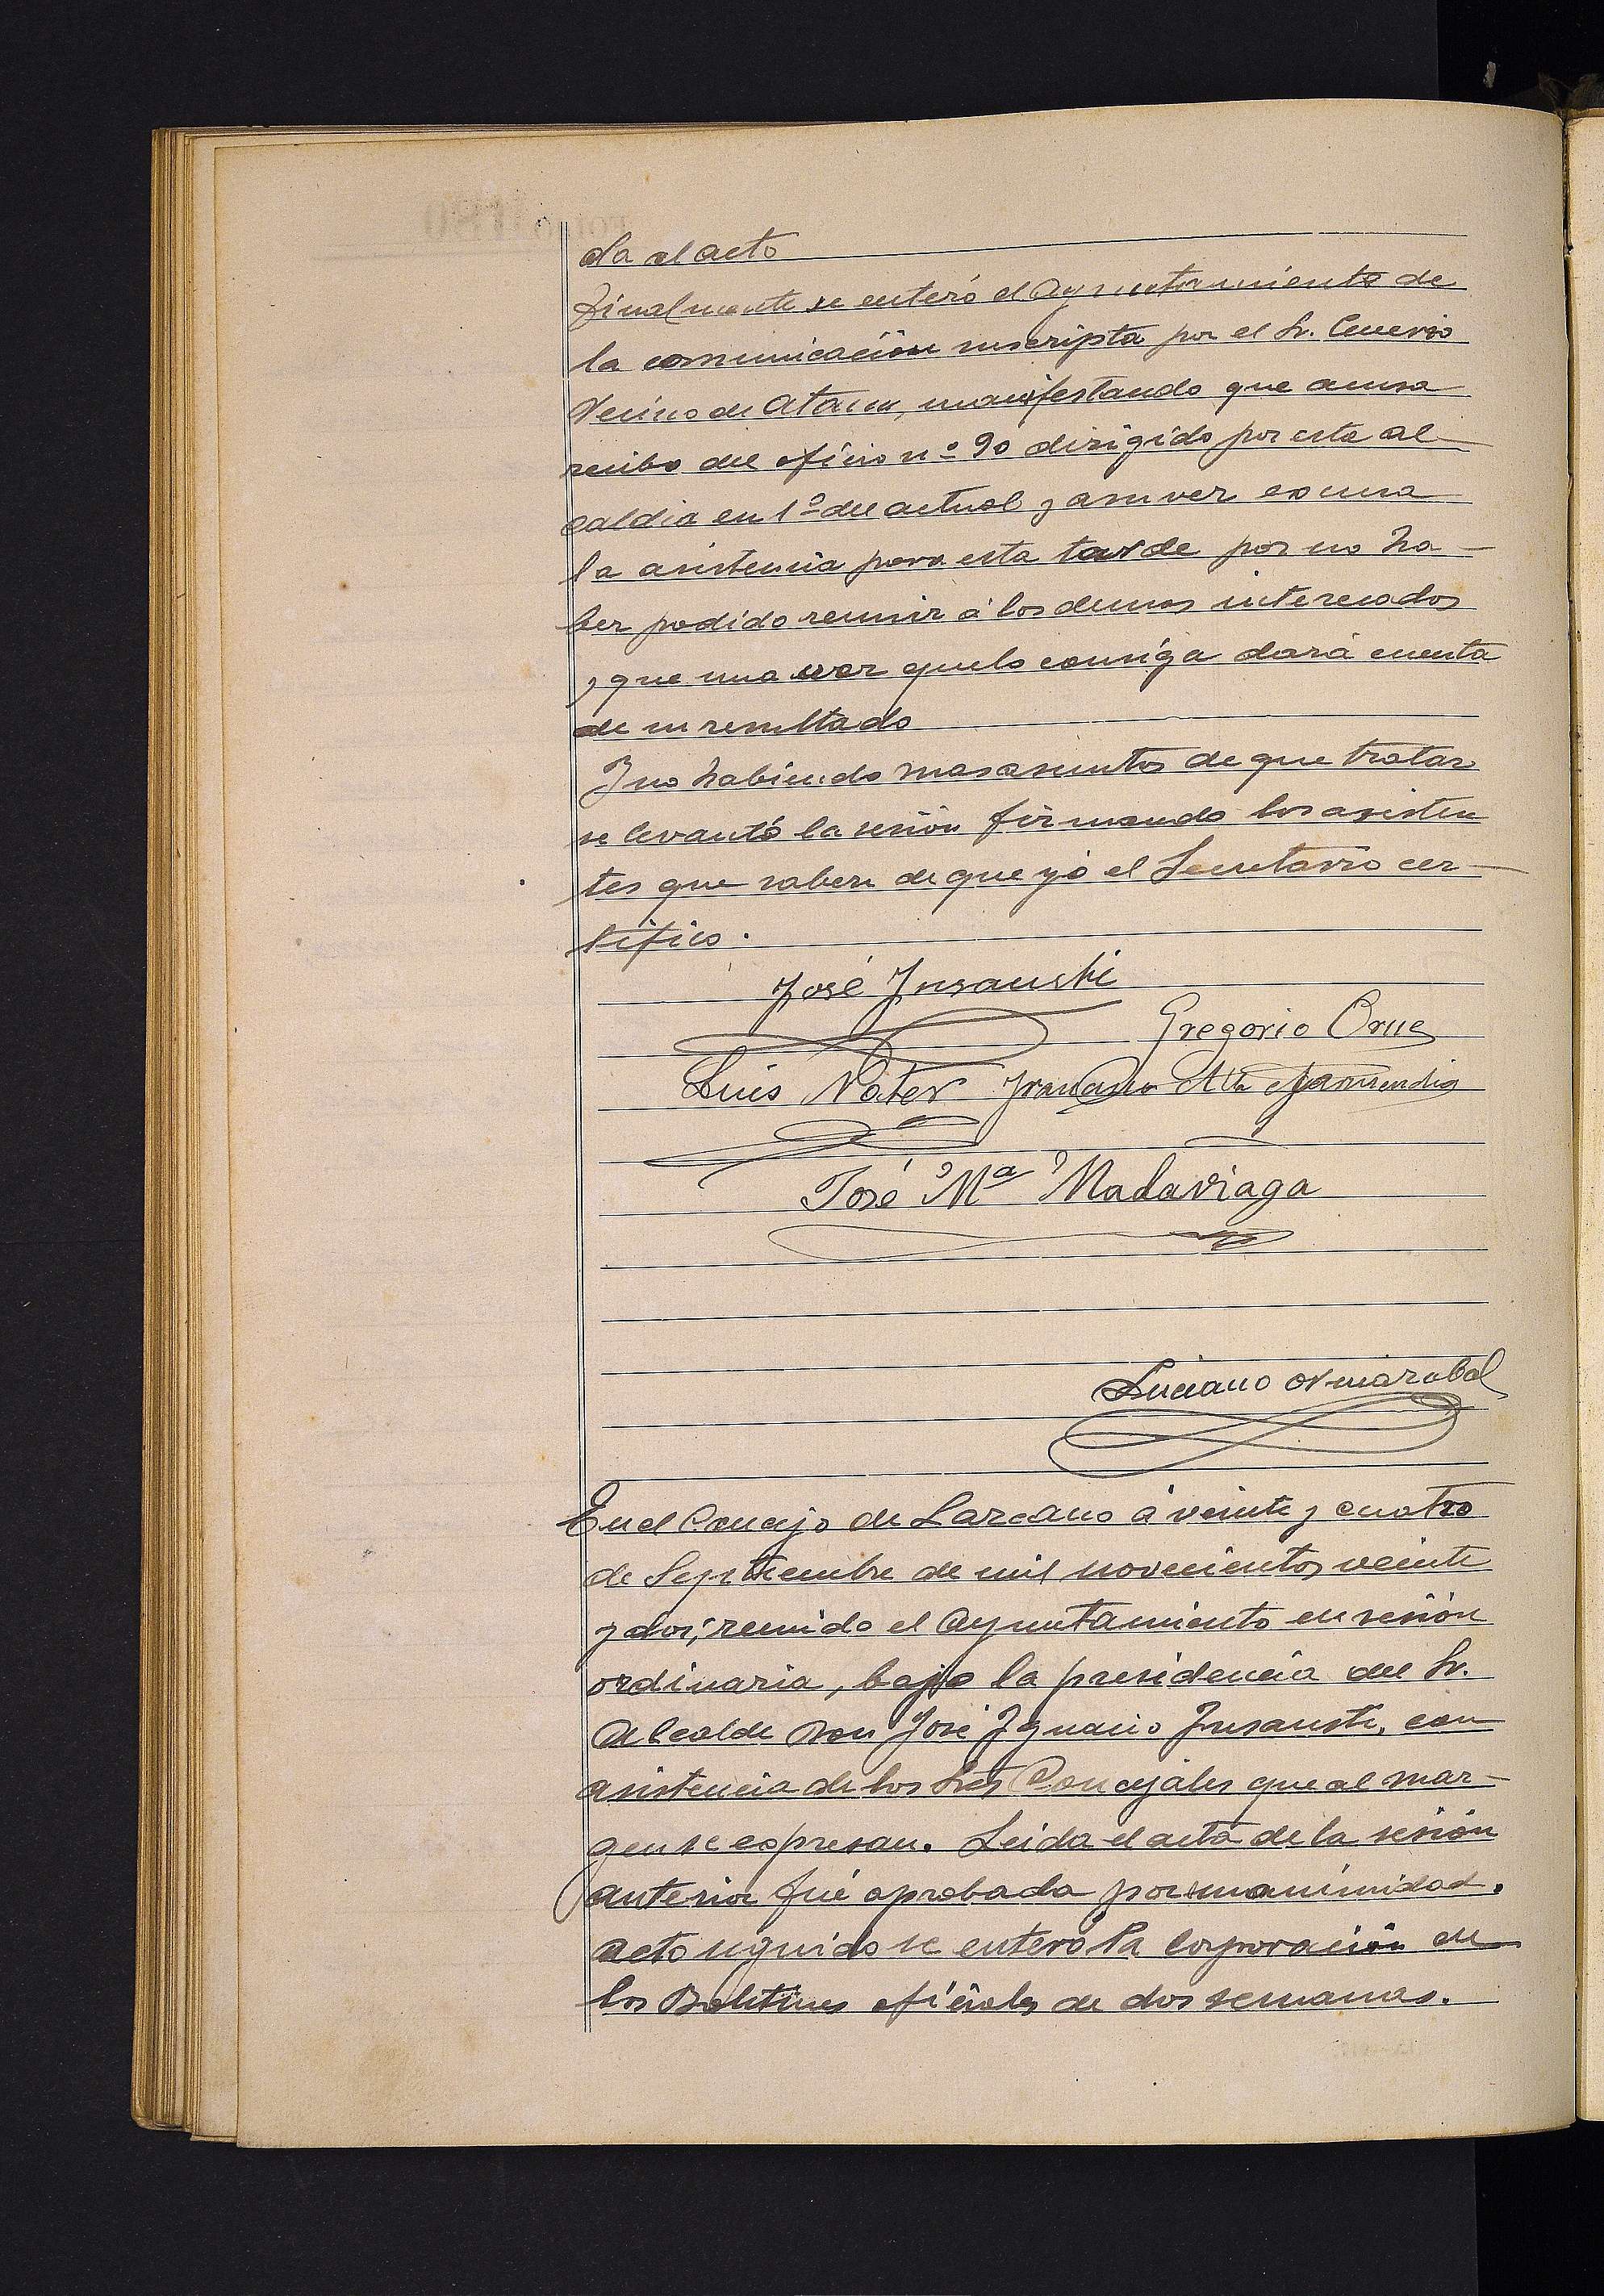 da al acto
Finalmente se enteró el Ayuntamiento de
la comunicación suscripta por el Sr.
Vecino de Ataun, manifestando que acusa
recibo del oficio nº 90 dirigido por esta al
caldia en 1º del actual y a su vez excusa
la asistencia para esta tarde por no ha-
ber podido reunir á los demas interesados
y que una vez que lo consiga dará cuenta
de su resultado
Y no habiendo mas asuntos de que tratar
se levantó la sesión firmando los asisten
tes que saben de que yó el Secretario cer-
tifico.
José Insausti
Gregorio Orue
Luis Noter Francisco
José Mª Madaviaga
Luciano
En el Concejo de Lazcano á veinte y cuatro
de Septiembre de mil novecientos veinte
y dos, reunido el Ayuntamiento en sesión
ordinaria, bajo la presidencia del Sr.
Alcalde Don José Ignacio Insausti, con
asistencia de los Sres Concejales que al mar-
gen se expresan. Leida el acta de la sesión
anterior fué aprobada por unanimidad.
Acto seguido se enteró la Corporación de
los Boletines oficiales de dos semanas.